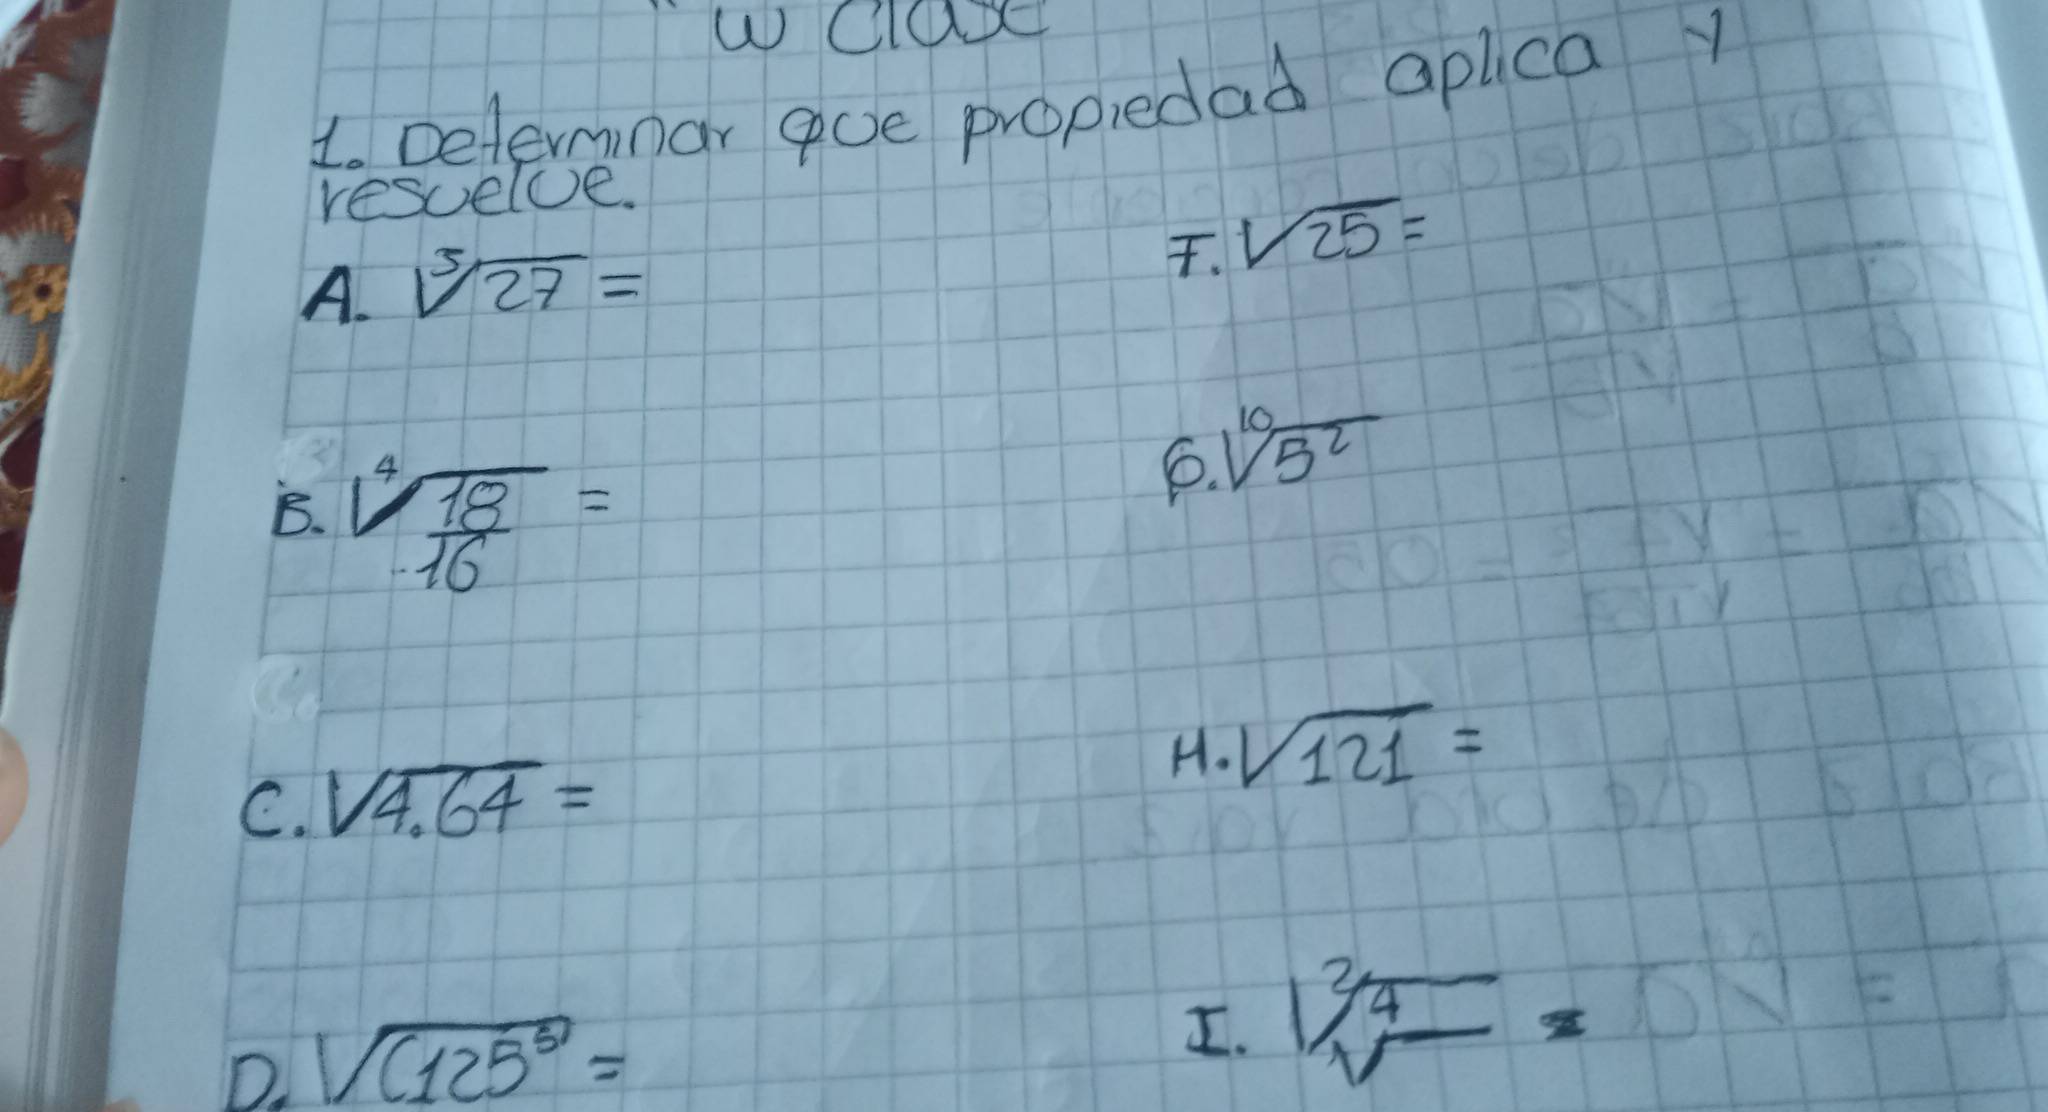 w Clase
1. Determinar que propiedad aplica y
resuelve.
A. ∛27 =
F. √25 =
B. ∜(18/16) =
G. ¹⁰√5²
C. √4.64 =
H. √121 =
D. √(125⁵) =
I. ²√⁴√ =